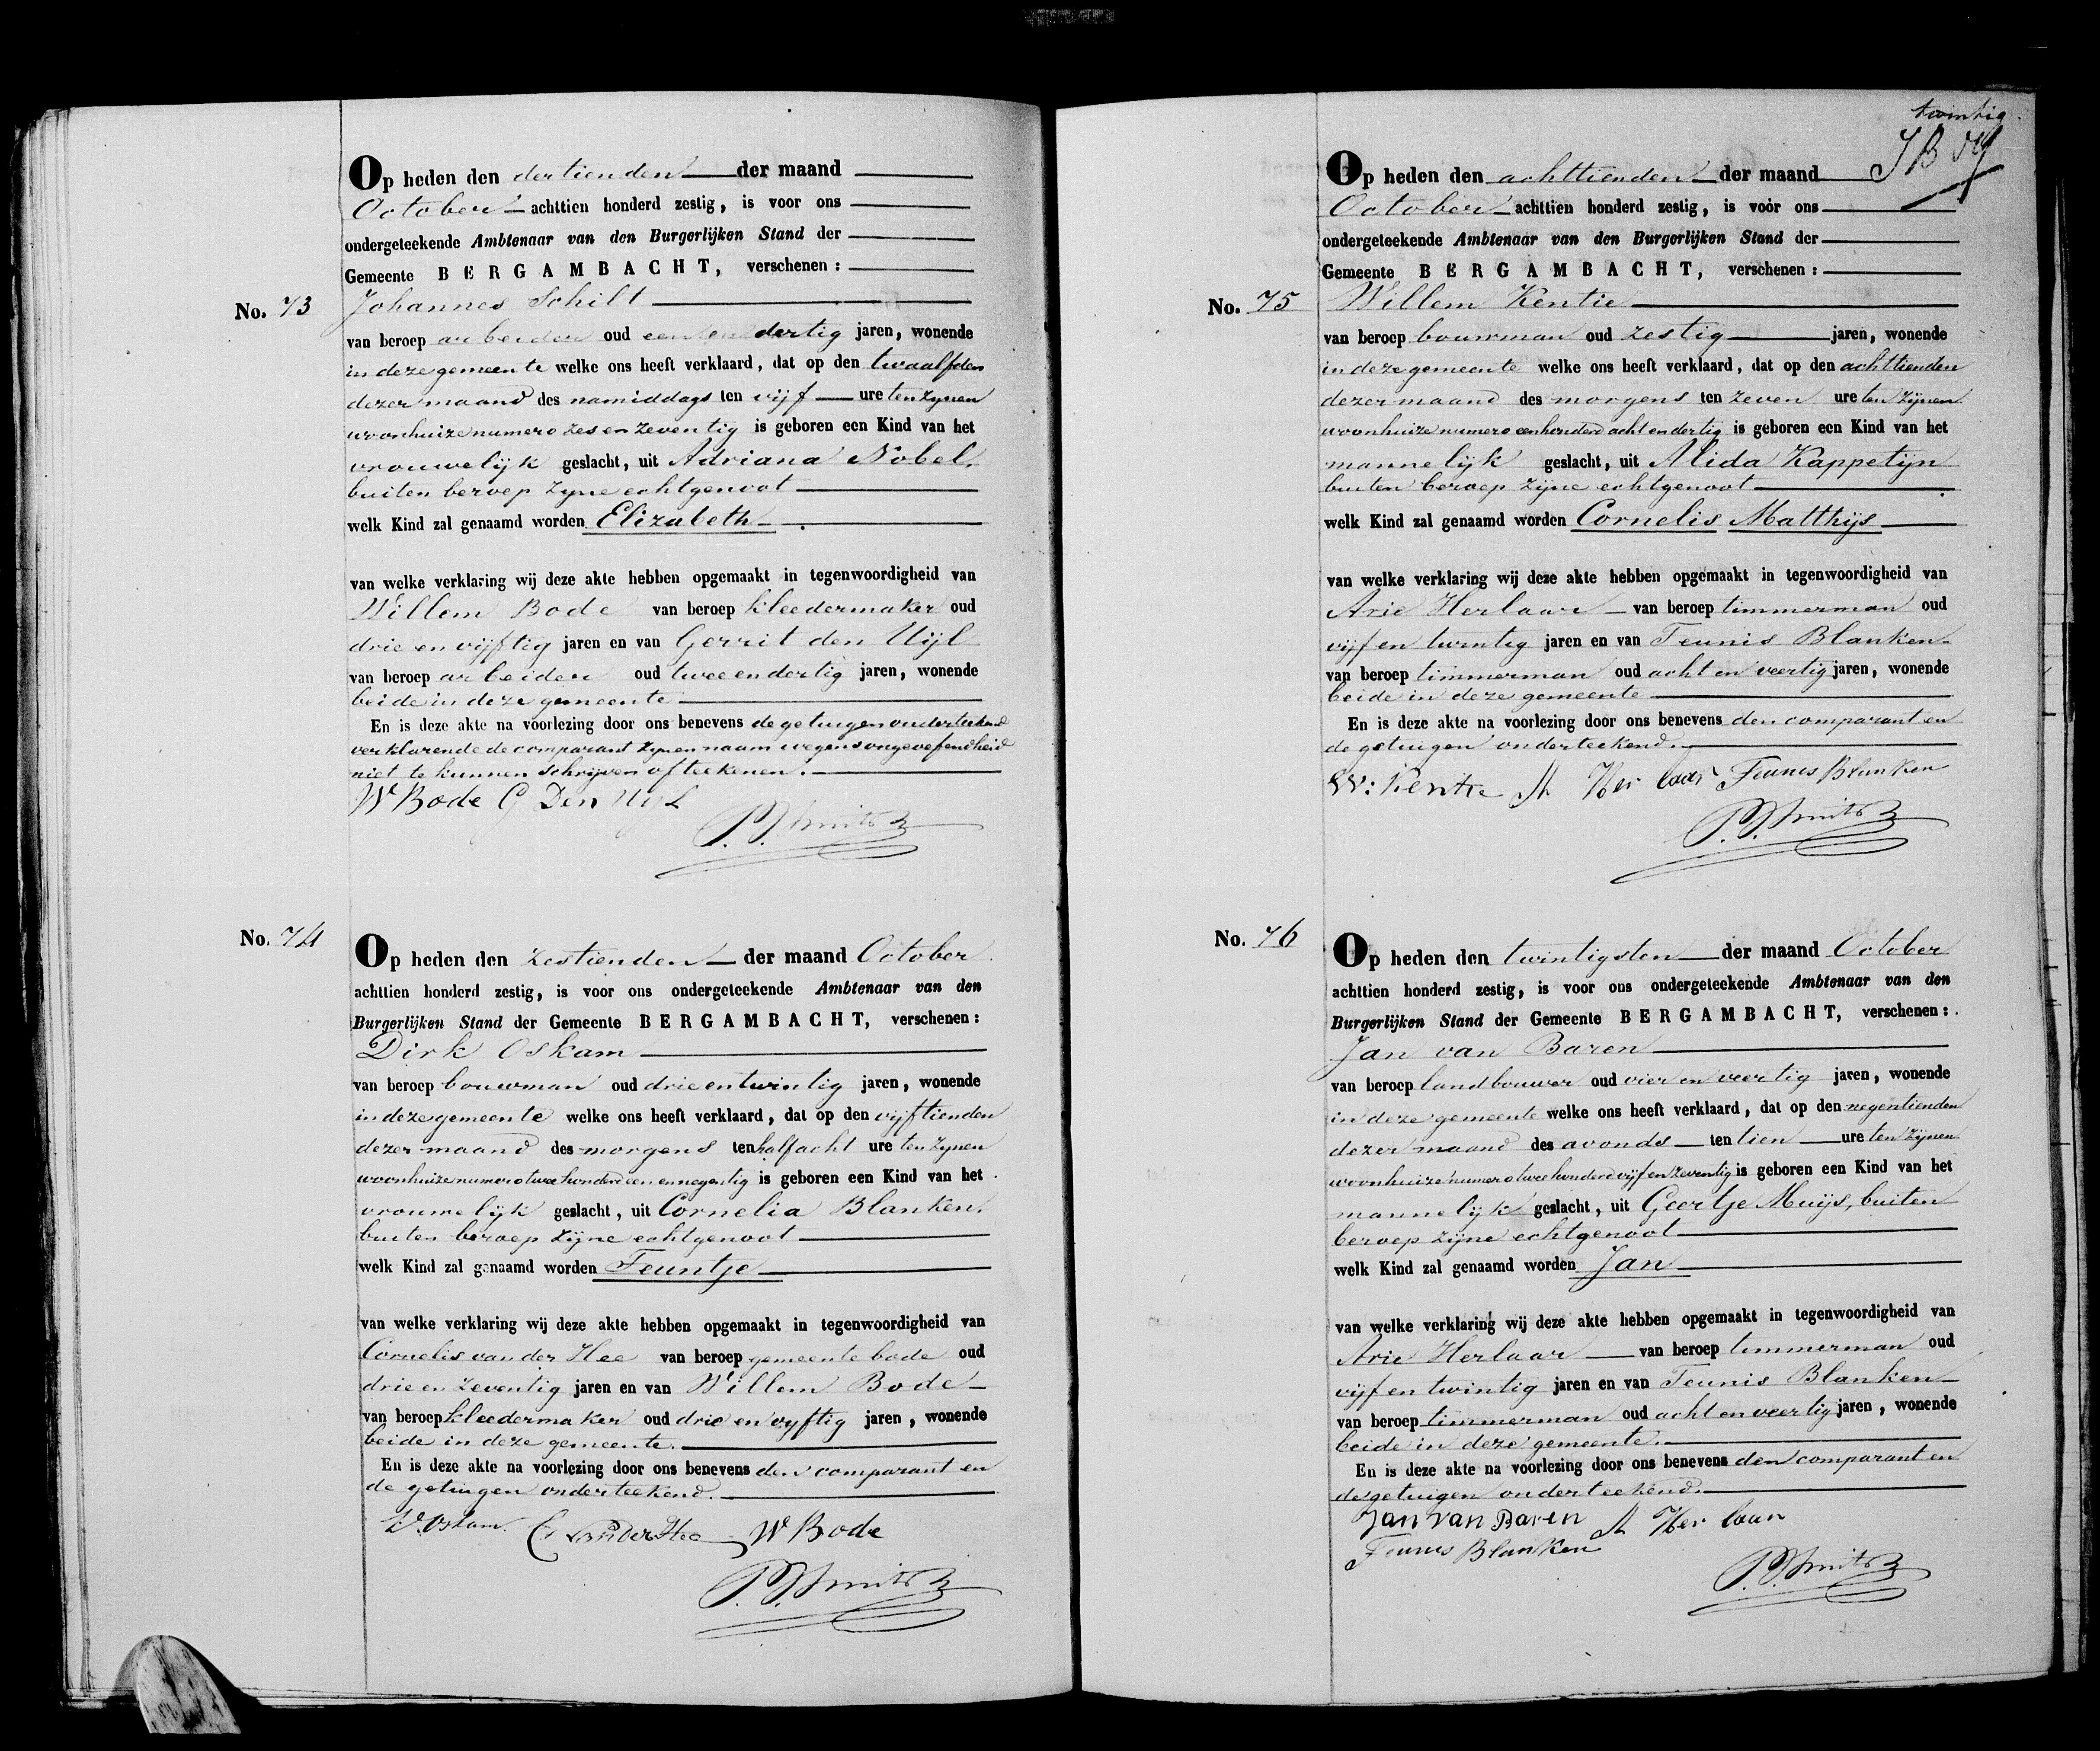 No. 73
Op heden den dertienden der maand
October achttien honderd zestig, is voor ons
ondergeteekende Ambtenaar van den Burgerlijken Stand der
Gemeente BERGAMBACHT, verschenen:
Johannes Schilt
van beroep arbeider oud een en dertig jaren, wonende
in deze gemeente welke ons heeft verklaard, dat op den twaalfden
dezer maand des namiddags ten vijf ure ten zynen
woonhuize numero zes en zeventig is geboren een Kind van het
vrouwelijk geslacht, uit Adriana Nobel,
buiten beroep zyne echtgenoot
welk Kind zal genaamd worden Elizabeth
van welke verklaring wij deze akte hebben opgemaakt in tegenwoordigheid van
Willem Bode van beroep kleedermaker oud
drie en vijftig jaren en van Gerrit den Uijl
van beroep arbeider oud twee en dertig jaren, wonende
beide in deze gemeente
En is deze akte na voorlezing door ons benevens de getuigen onderteekend
verklarende de comparant zynen naam wegens ongeoefendheid
niet te kunnen schrijven of teekenen.
W Bode G Den Uyl
P. J. Smits
No. 74
Op heden den zestienden der maand October
achttien honderd zestig, is voor ons ondergeteekende Ambtenaar van den
Burgerlijken Stand der Gemeente BERGAMBACHT, verschenen:
Dirk Oskam
van beroep bouwman oud drie en twintig jaren, wonende
in deze gemeente welke ons heeft verklaard, dat op den vijftienden
dezer maand des morgens ten half acht ure ten zynen
woonhuize numero twee honderd een en negentig is geboren een Kind van het
vrouwelijk geslacht, uit Cornelia Blanken,
buiten beroep zijne echtgenoot
welk Kind zal genaamd worden Teuntje
van welke verklaring wij deze akte hebben opgemaakt in tegenwoordigheid van
Cornelis van der Hee van beroep gemeente bode oud
drie en zeventig jaren en van Willem Bode
van beroep kleedermaker oud drie en vyftig jaren, wonende
beide in deze gemeente.
En is deze akte na voorlezing door ons benevens den comparant en
de getuigen onderteekend.
D. Oskam. C van der Hee W Bode
P. J. Smits
twintig
No. 75
Op heden den achttienden der maand
October achttien honderd zestig, is voor ons
ondergeteekende Ambtenaar van den Burgerlijken Stand der
Gemeente BERGAMBACHT, verschenen:
Willem Kentie
van beroep bouwman oud zestig jaren, wonende
in deze gemeente welke ons heeft verklaard, dat op den achttienden
dezer maand des morgens ten zeven ure ten zijnen
woonhuize numero eenhonderd acht en dertig is geboren een Kind van het
mannelijk geslacht, uit Alida Kappetijn
buiten beroep zijne echtgenoot
welk Kind zal genaamd worden Cornelis Matthijs
van welke verklaring wij deze akte hebben opgemaakt in tegenwoordigheid van
Arie Herlaar van beroep timmerman oud
vijf en twintig jaren en van Teunis Blanken
van beroep timmerman oud acht en veertig jaren, wonende
beide in deze gemeente
En is deze akte na voorlezing door ons benevens den comparant en
de getuigen onderteekend.
W: Kentie A Herlaar Teunis Blanken
P. J. Smits
No. 76
Op heden den twintigsten der maand October
achttien honderd zestig, is voor ons ondergeteekende Ambtenaar van den
Burgerlijken Stand der Gemeente BERGAMBACHT, verschenen:
Jan van Baren
van beroep landbouwer oud vier en veertig jaren, wonende
in deze gemeente welke ons heeft verklaard, dat op den negentienden
dezer maand des avonds ten tien ure ten zijnen
woonhuize numero twee honderd vijf en zeventig is geboren een Kind van het
mannelijk geslacht, uit Geertje Muijs, buiten
beroep zijne echtgenoot
welk Kind zal genaamd worden Jan
van welke verklaring wij deze akte hebben opgemaakt in tegenwoordigheid van
Arie Herlaar van beroep timmerman oud
vijf en twintig jaren en van Teunis Blanken
van beroep timmerman oud acht en veertig jaren, wonende
beide in deze gemeente.
En is deze akte na voorlezing door ons benevens den comparant en
de getuigen onderteekend.
Jan van Baren A Herlaar
Teunis Blanken
P. J. Smits